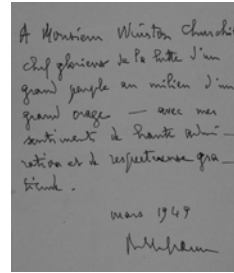 A Monsieur Winston Churchi
chef glorieux de la lutte d'un
grand peuple au milieu d'un
grand orage — avec mes
sentiments de haute admi-
ration et de respectueuse gra-
titude.
mars 1949